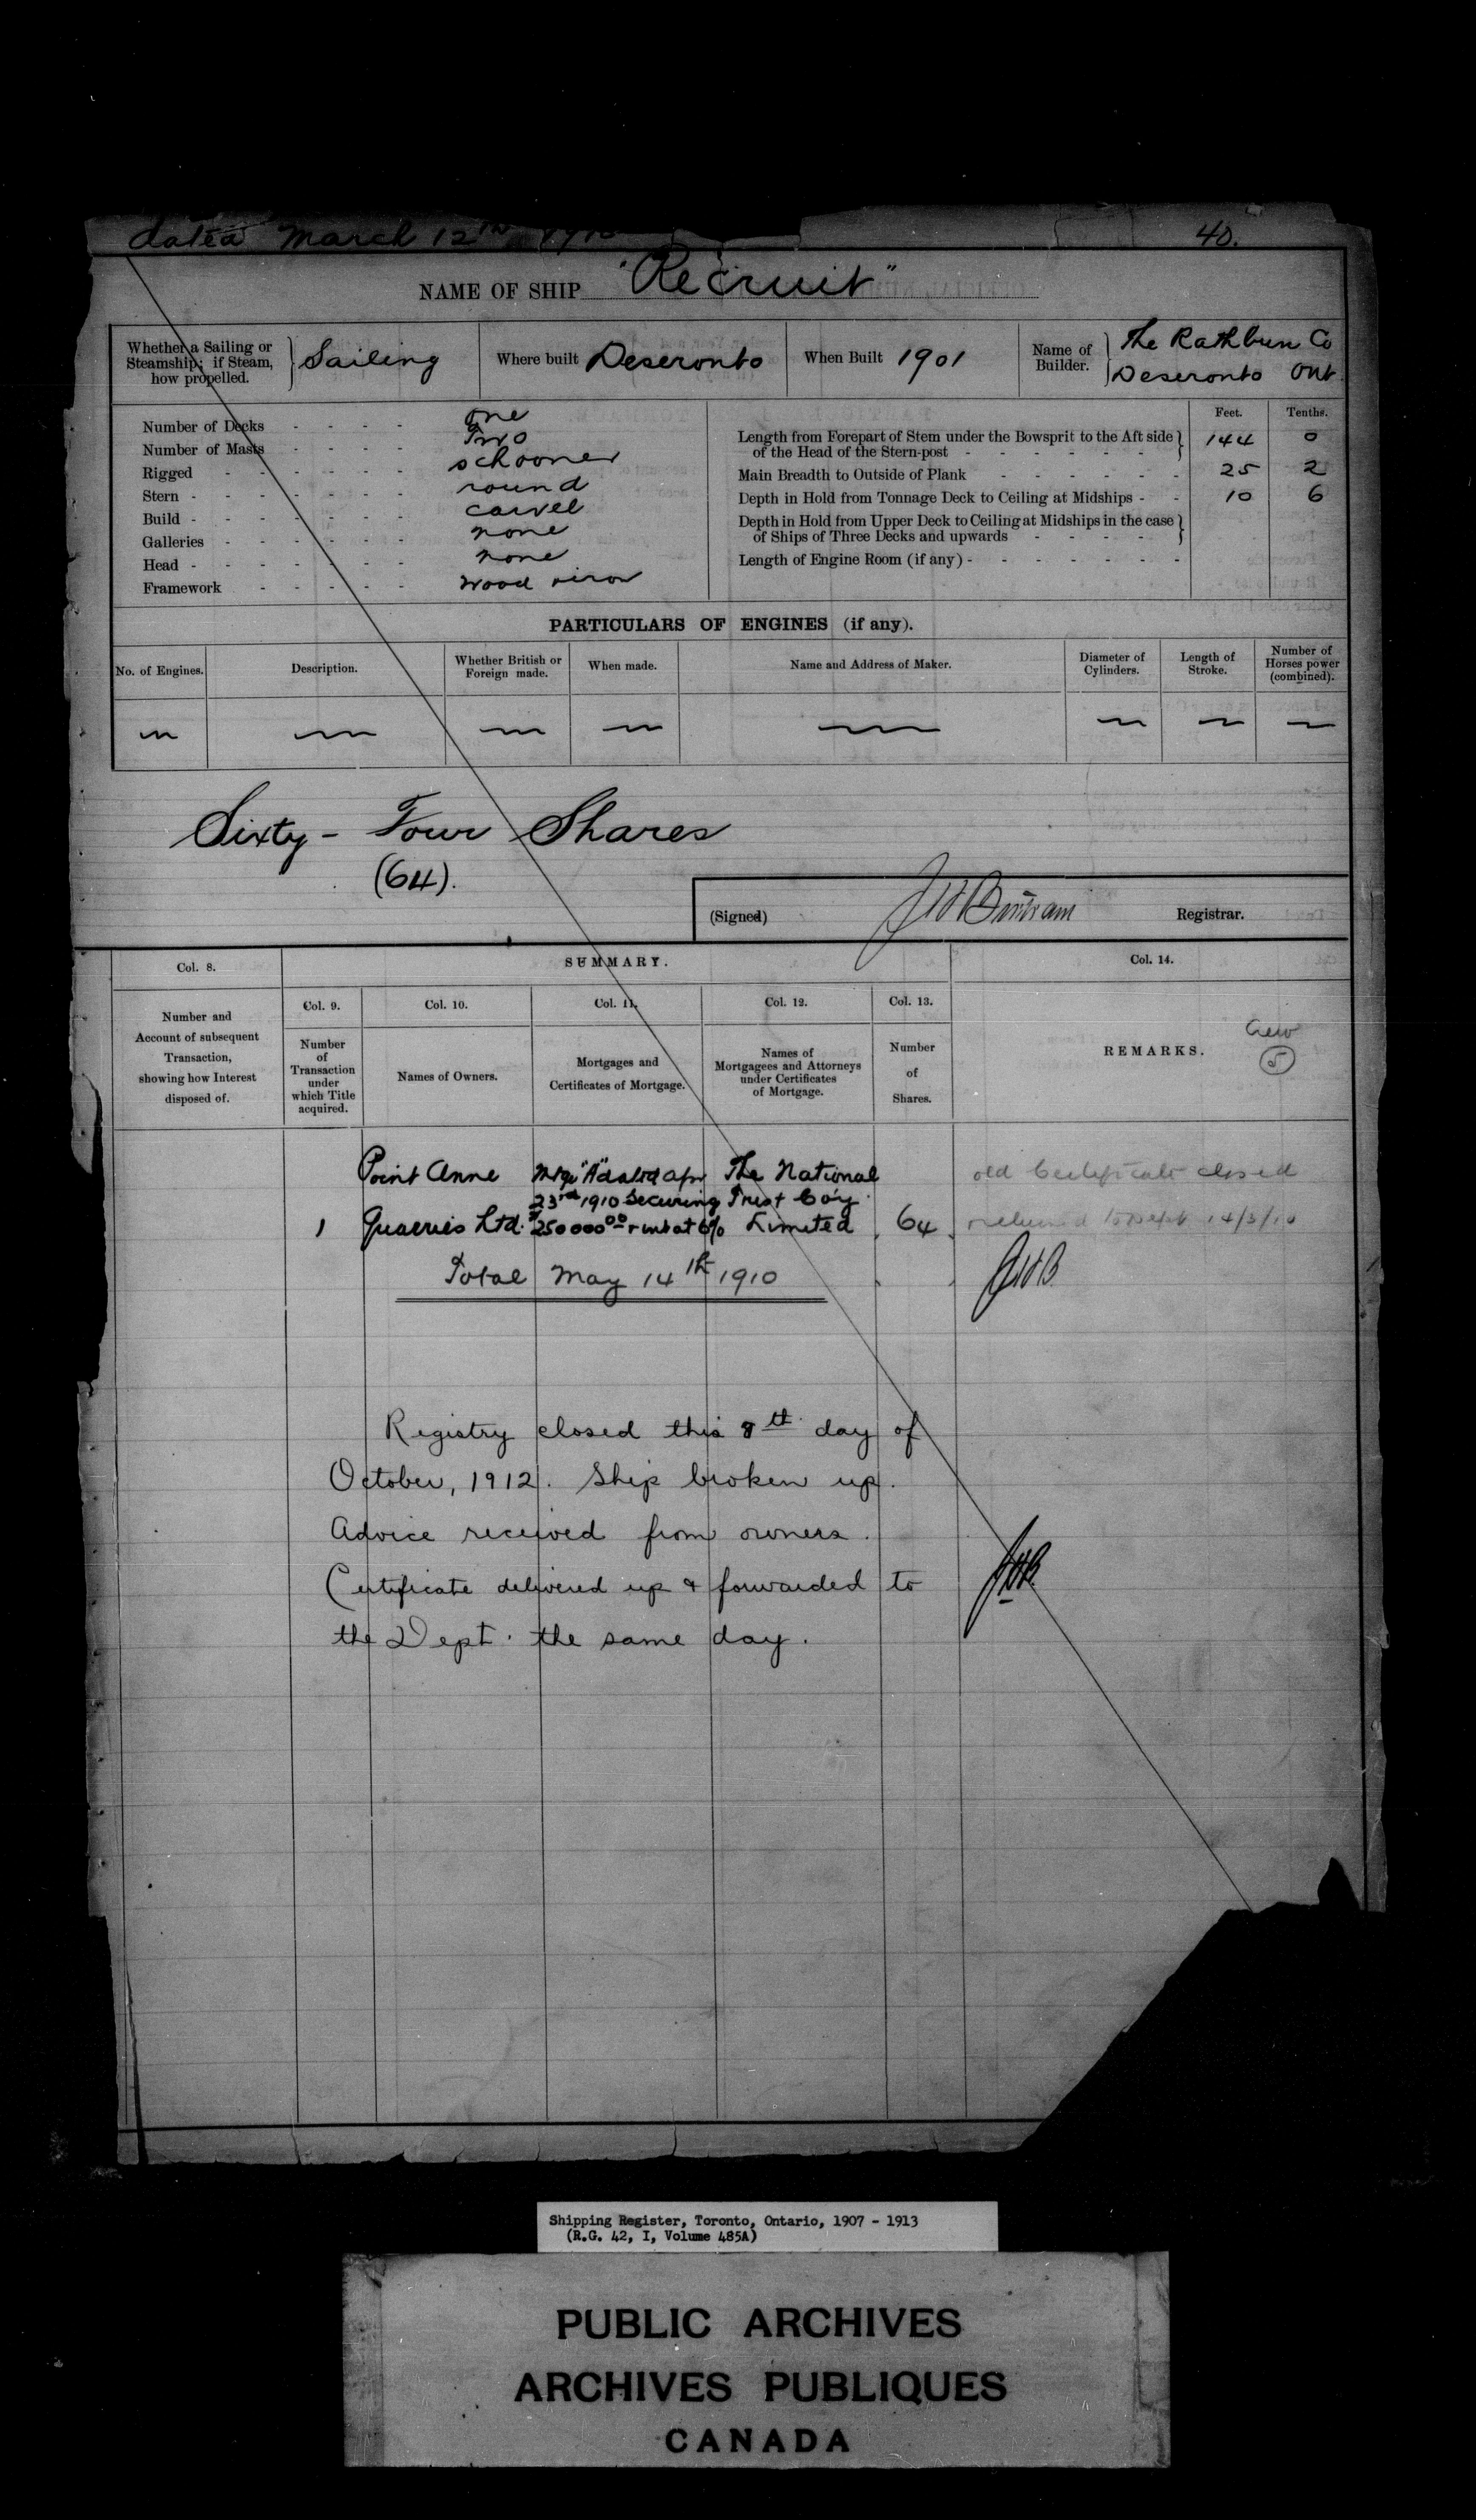 dated March 12th 1910
40.
NAME OF SHIP "Recruit"
Whether a Sailing or Steamship; if Steam, how propelled. Sailing
Where built Deseronto
When Built 1901
Name of Builder. The Rathbun Co Deseronto Ont
Feet. Tenths.
Number of Decks - - - - one
Number of Masts - - - - Two
Rigged - - - - - - schooner
Stern - - - - - - round
Build - - - - - - carvel
Galleries - - - - - - none
Head - - - - - - none
Framework - - - - - wood & iron
Length from Forepart of Stem under the Bowsprit to the Aft side
of the Head of the Stern-post - - - - - - 144 0
Main Breadth to Outside of Plank - - - - - - 25 2
Depth in Hold from Tonnage Deck to Ceiling at Midships - - 10 6
Depth in Hold from Upper Deck to Ceiling at Midships in the case
of Ships of Three Decks and upwards - - - -
Length of Engine Room (if any) - - - - - - -
PARTICULARS OF ENGINES (if any).
No. of Engines.
Description.
Whether British or Foreign made.
When made.
Name and Address of Maker.
Diameter of Cylinders.
Length of Stroke.
Number of Horses power (combined).
Sixty - Four Shares
(64).
(Signed) J W Bertram Registrar.
Col. 8.
SUMMARY.
Col. 14.
Col. 9. Col. 10. Col. 11. Col. 12. Col. 13.
Number and Account of subsequent Transaction, showing how Interest disposed of.
Number of Transaction under which Title acquired.
Names of Owners.
Mortgages and Certificates of Mortgage.
Names of Mortgagees and Attorneys under Certificates of Mortgage.
Number of Shares.
REMARKS.
Crew
5
Point Anne Mtge "A" dated Apr The National old Certificate closed
23rd 1910 Securing Trust Co'y
1 Quarries Ltd. $250000 00 + int at 6% Limited 64 returned to Dept 14/5/10
Total May 14th 1910
JWB
Registry closed this 8th day of
October, 1912. Ship broken up.
Advice received from owners.
Certificate delivered up & forwarded to
the Dept. the same day.
JWB
Shipping Register, Toronto, Ontario, 1907 - 1913
(R.G. 42, I, Volume 485A)
PUBLIC ARCHIVES
ARCHIVES PUBLIQUES
CANADA